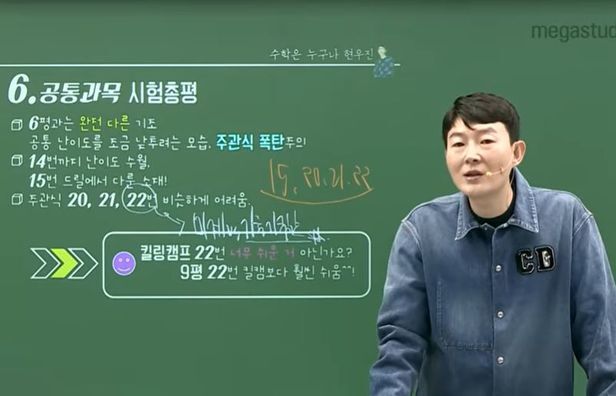 megastud
수학은 누구나 현우진
6. 공통과목 시험총평
6평과는 완전 다른 기조
공통 난이도를 조금 낮추려는 모습, 주관식 폭탄주의
14번까지 난이도 수월,
15번 드릴에서 다룬 소재!
15, 20, 21, 22
주관식 20, 21, 22번 비슷하게 어려움,
킬링캠프 22번 너무 쉬운 거 아닌가요?
9평 22번 킬캠보다 훨씬 쉬움^^!
CD